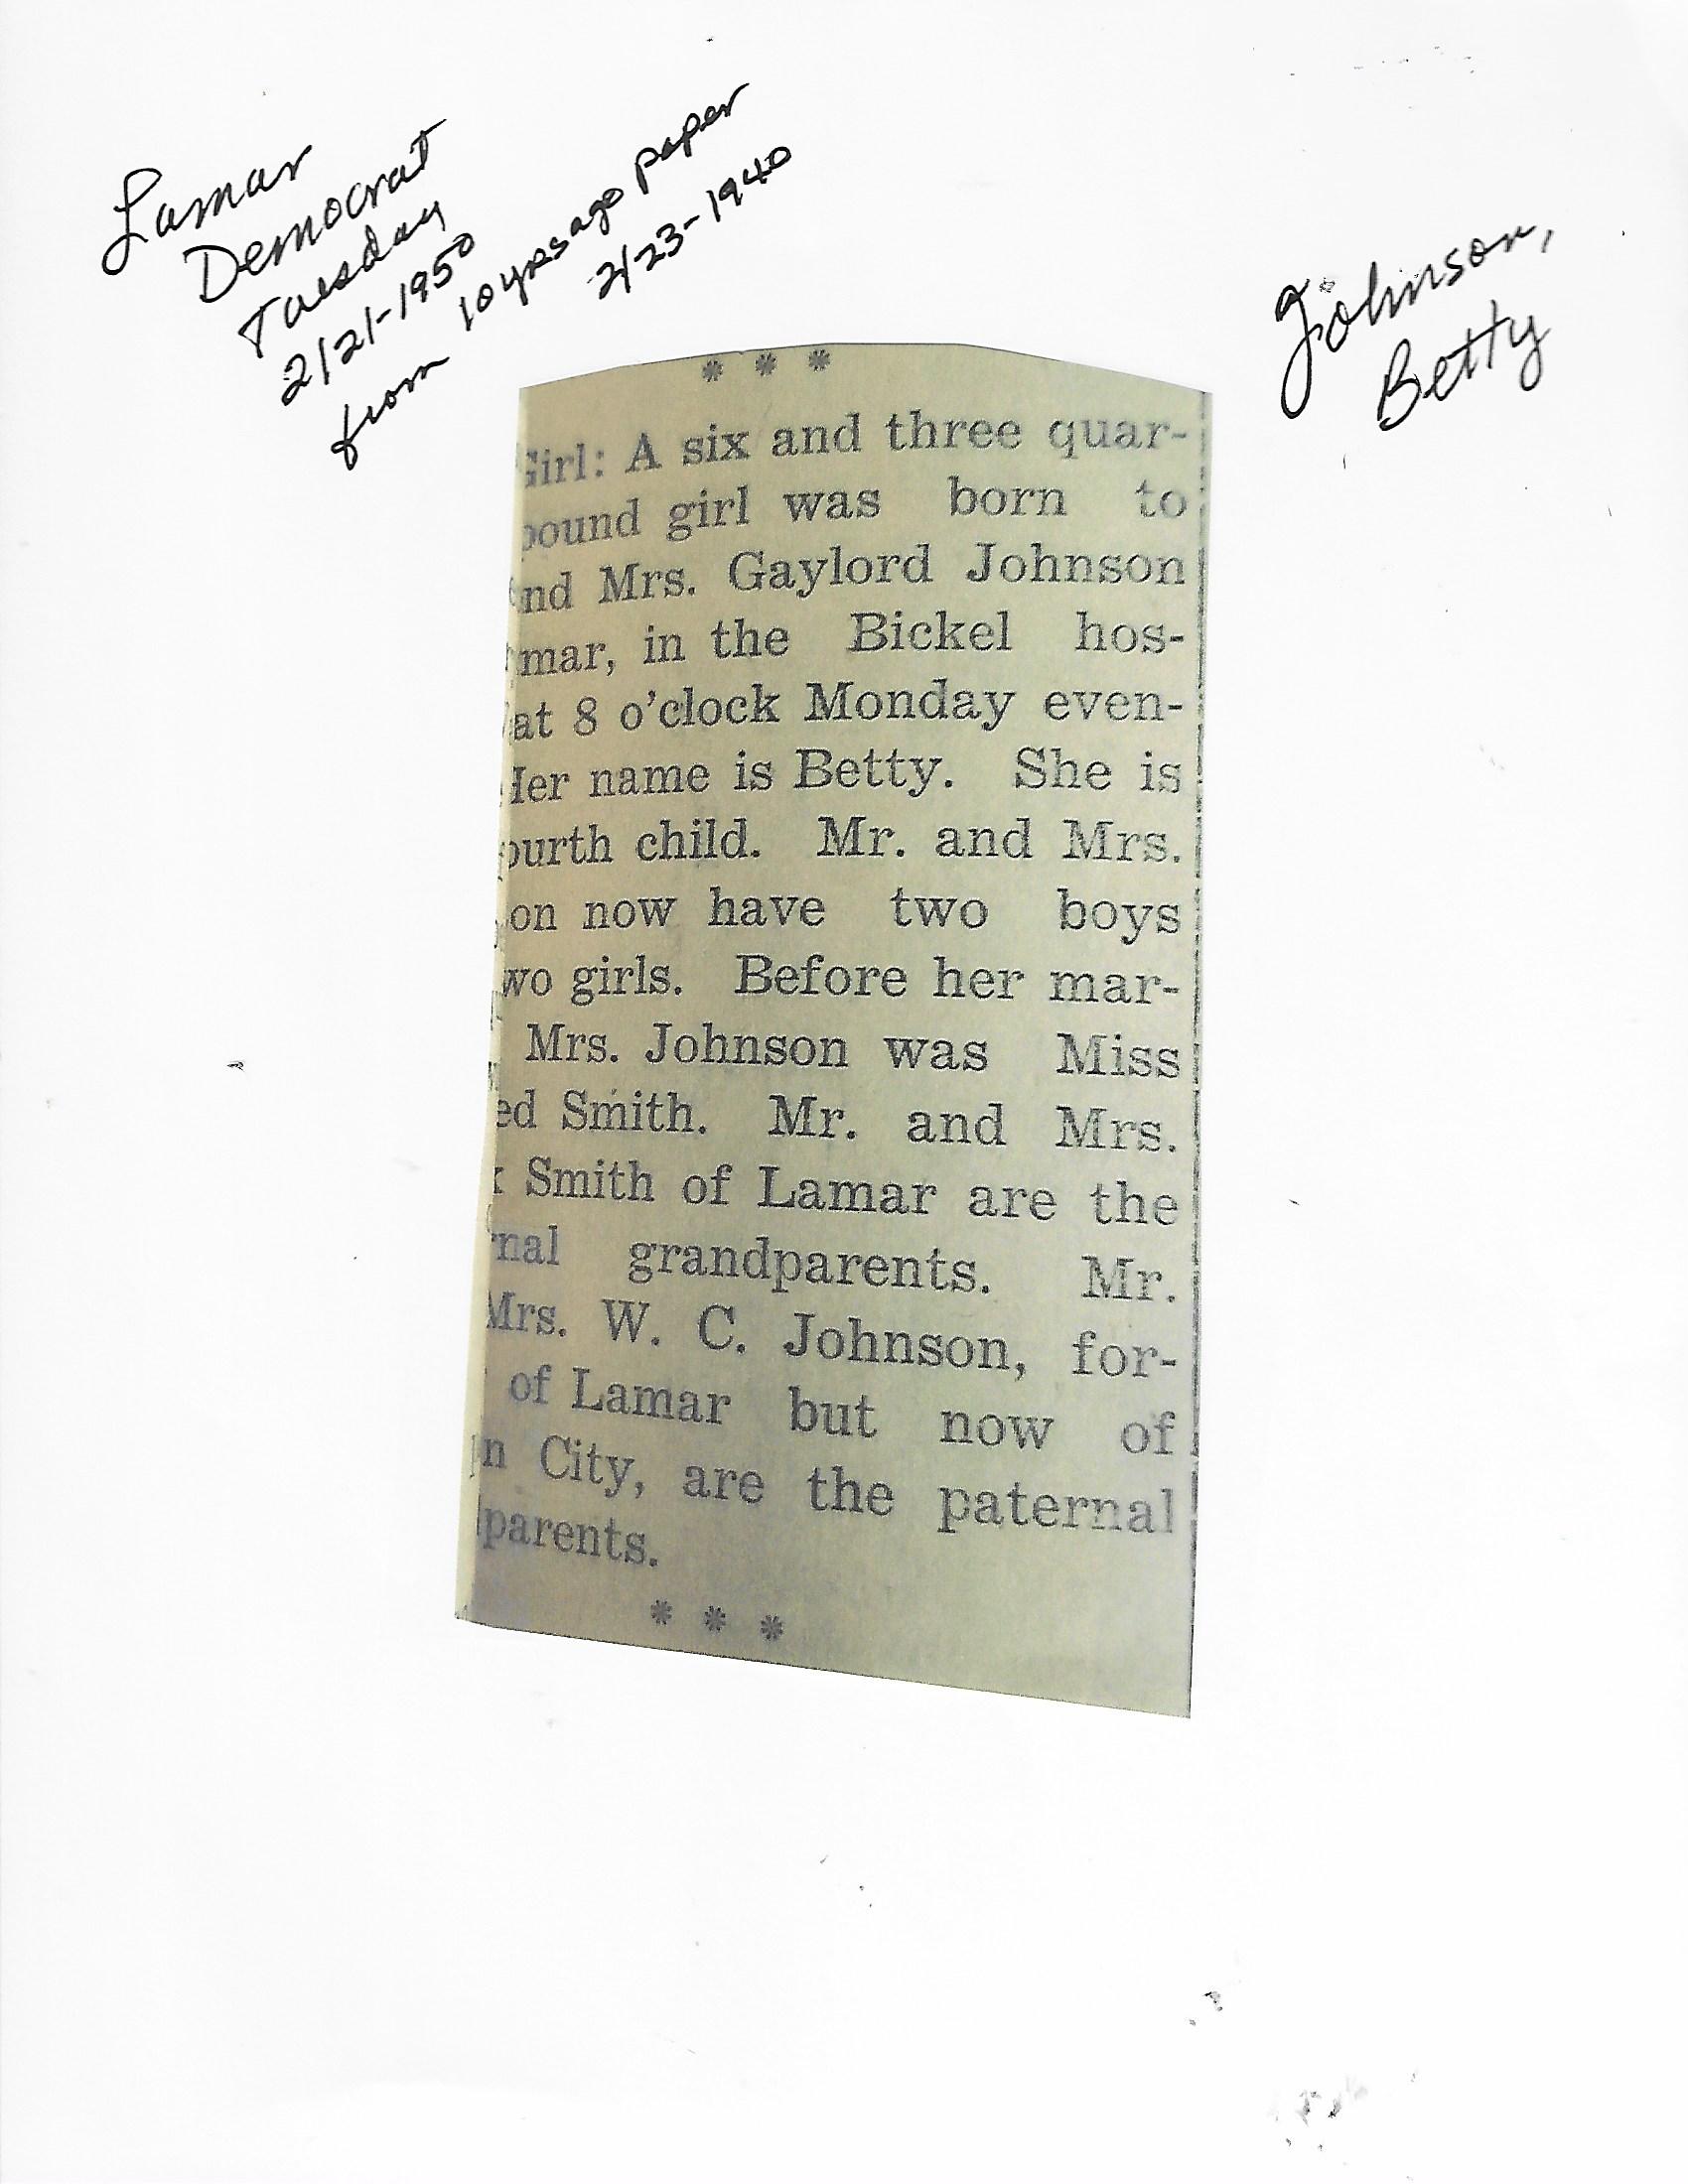 Lamar
Democrat
Tuesday
2/21-1950
from 10 yrs ago paper
2/23-1940
Johnson,
Betty
* * *
Girl: A six and three quar-
pound girl was born to
and Mrs. Gaylord Johnson
mar, in the Bickel hos-
at 8 o'clock Monday even-
Her name is Betty. She is
ourth child. Mr. and Mrs.
on now have two boys
wo girls. Before her mar-
Mrs. Johnson was Miss
ed Smith. Mr. and Mrs.
Smith of Lamar are the
rnal grandparents. Mr.
Mrs. W. C. Johnson, for-
of Lamar but now of
n City, are the paternal
parents.
* * *